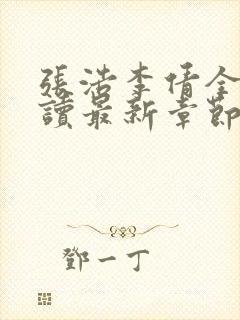 張浩李倩全
讀最新章節
鄧一丁